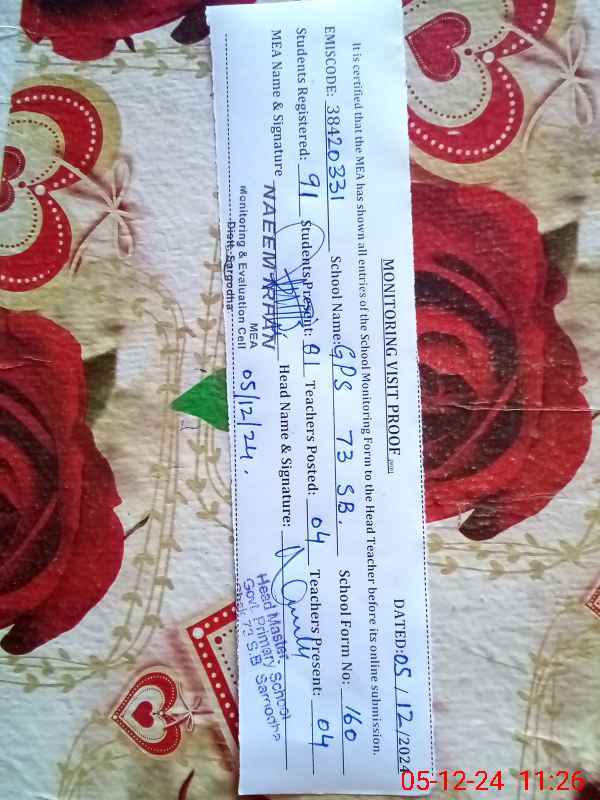 MONITORING VISIT PROOF
DATED: 05/12/2024
It is certified that the MEA has shown all entries of the School Monitoring Form to the Head Teacher before its online submission.
EMISCODE: 38420331 School Name: GPS 73 SB. School Form No: 160
Students Registered: 91 Students Present: 81 Teachers Posted: 04 Teachers Present: 04
MEA Name & Signature NAEEM Head Name & Signature:
MEA
Monitoring & Evaluation Cell
Distt. Sargodha
05/12/24.
Head Master
Govt. Primary School
Chak 73 S.B Sargodha
05-12-24 11:26